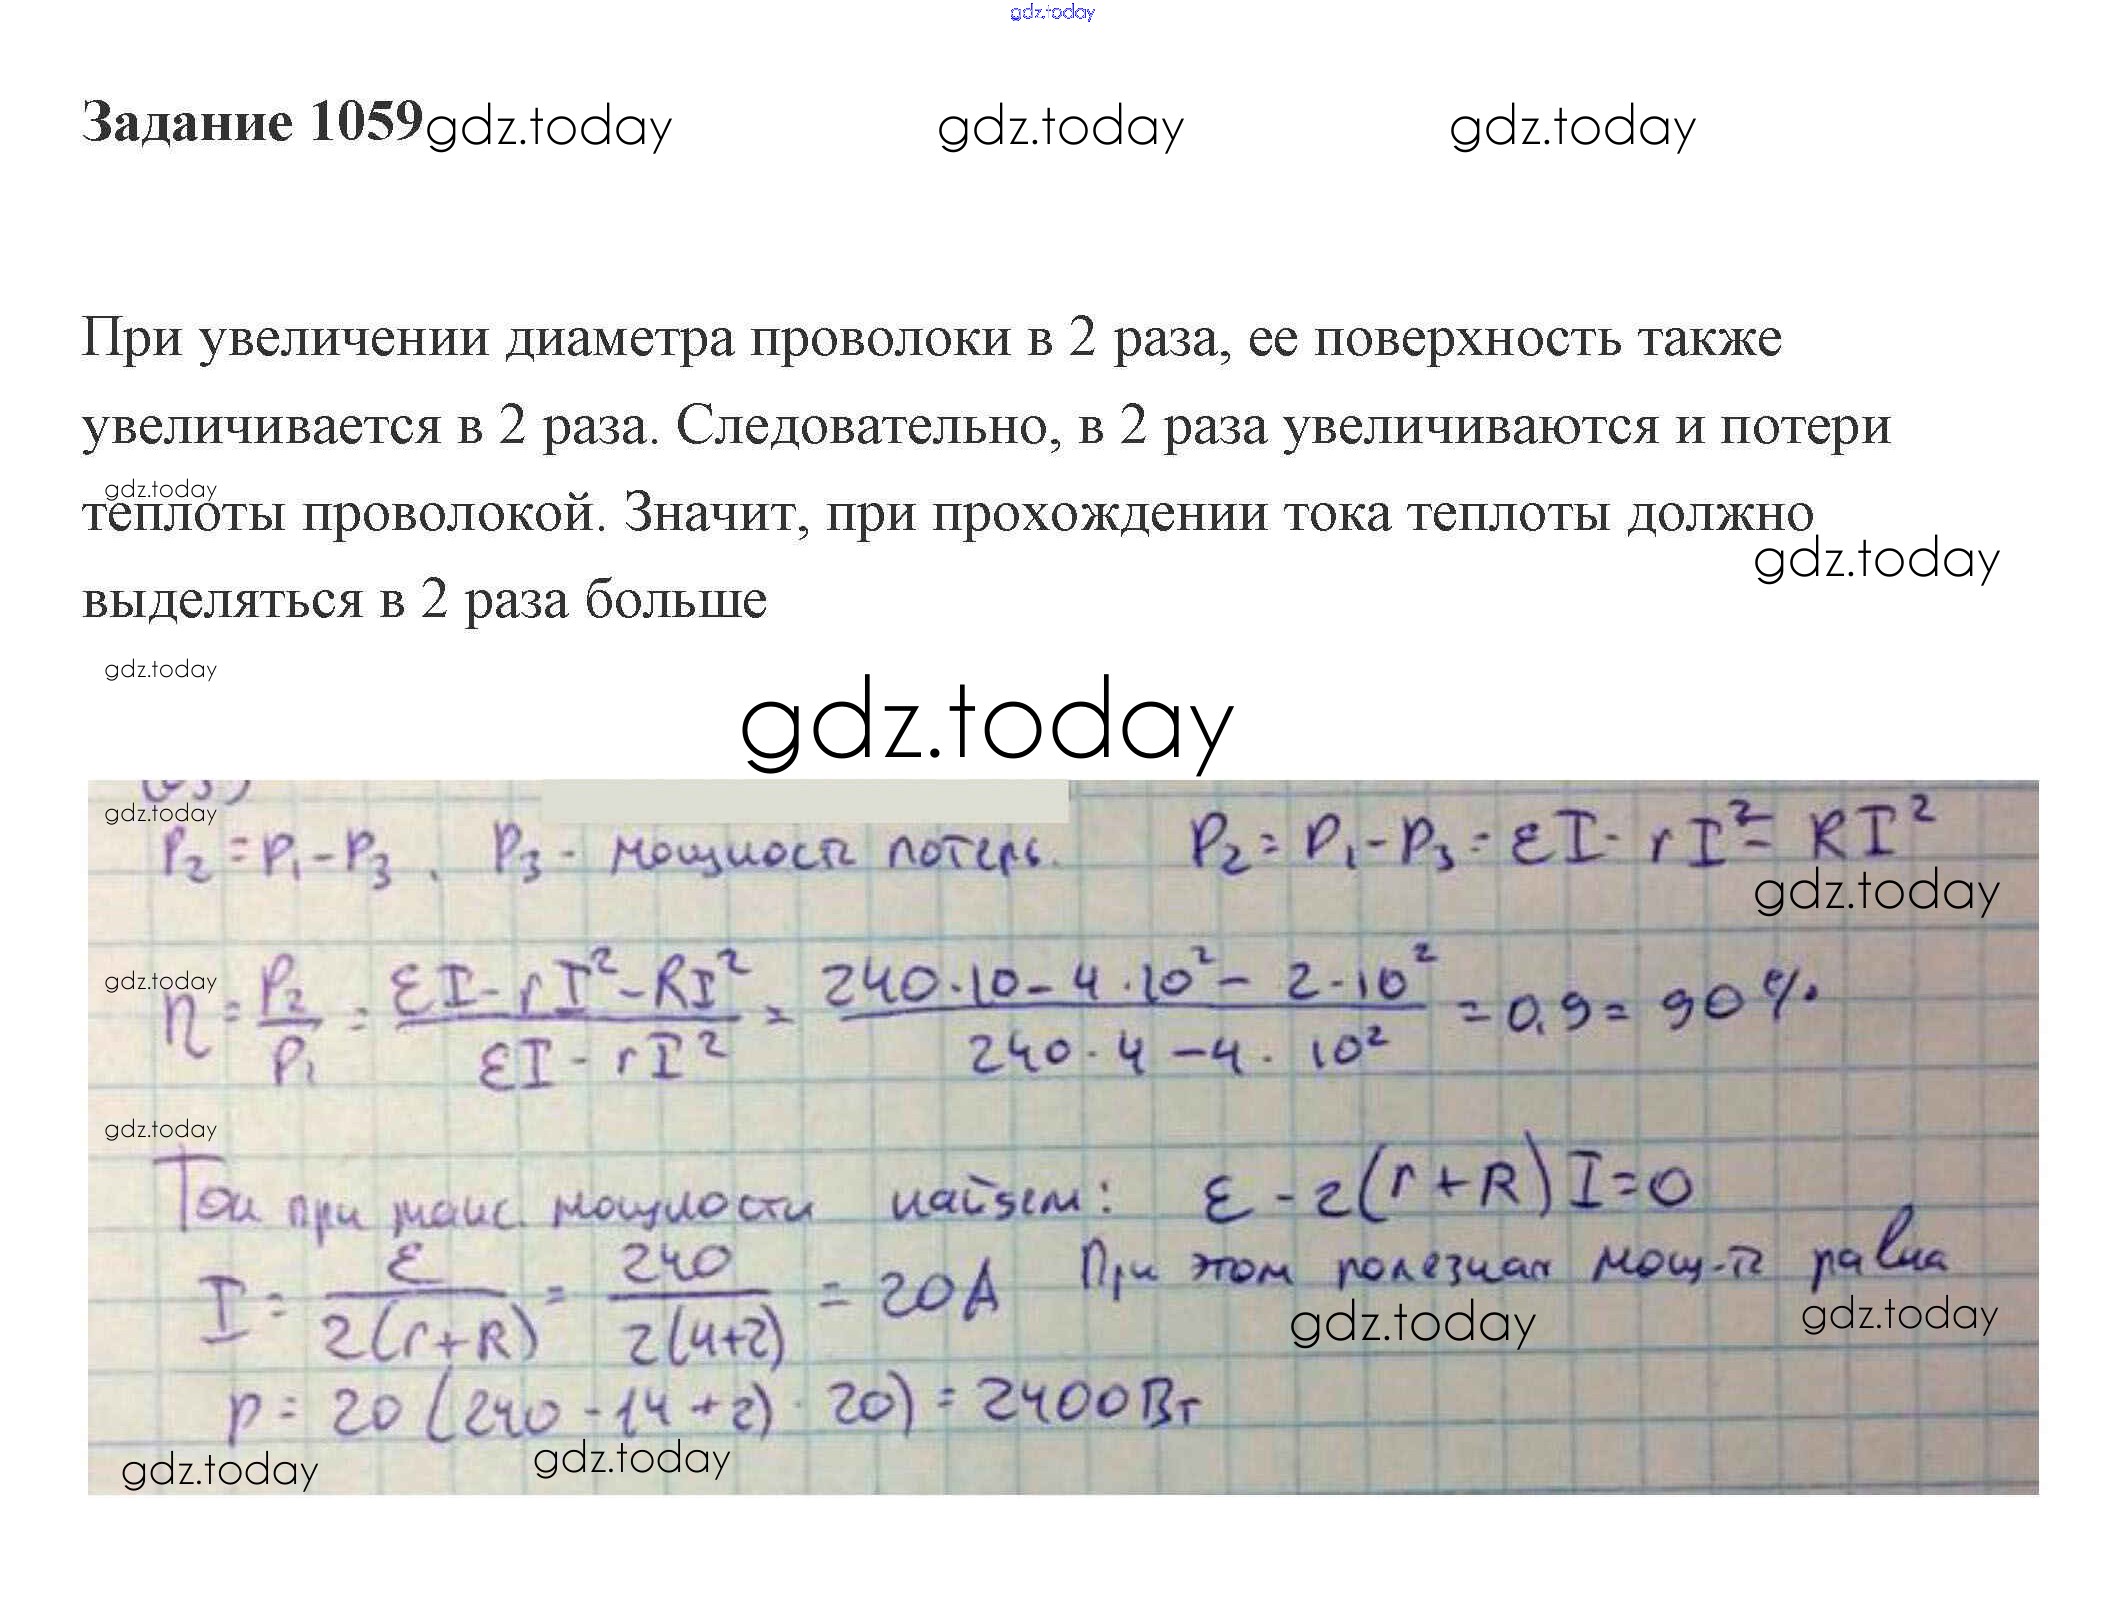 gdz.today
Задание 1059gdz.today gdz.today gdz.today
При увеличении диаметра проволоки в 2 раза, ее поверхность также
увеличивается в 2 раза. Следовательно, в 2 раза увеличиваются и потери
gdz.today
теплоты проволокой. Значит, при прохождении тока теплоты должно
gdz.today
выделяться в 2 раза больше
gdz.today
gdz.today
gdz.today
P₂ = P₁ - P₃ . P₃ - мощность потерь. P₂ = P₁ - P₃ = εI - rI² - RI²
gdz.today
gdz.today
η = P₂/P₁ = (εI - rI² - RI²)/(εI - rI²) = (240·10 - 4·10² - 2·10²)/(240·4 - 4·10²) = 0,9 = 90%
gdz.today
Ток при макс. мощности найдем: ε - 2(r+R)I = 0
I = ε/(2(r+R)) = 240/(2(4+2)) = 20A При этом полезная мощ-ть равна
gdz.today gdz.today
p = 20(240 - (4+2)·20) = 2400Вт
gdz.today gdz.today